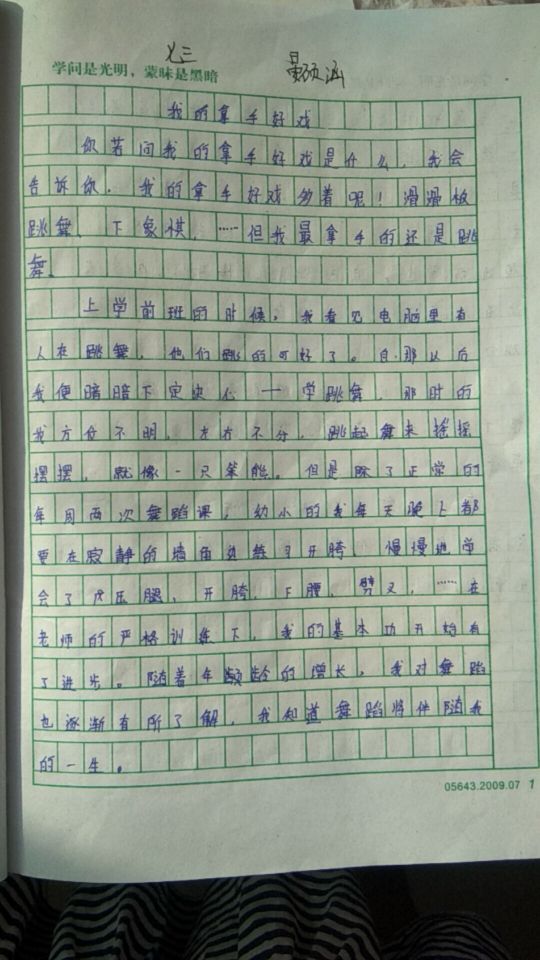 六三
学问是光明，蒙昧是黑暗
硕涵
我的拿手好戏
你若问我的拿手好戏是什么，我会
告诉你，我的拿手好戏多着呢！滑滑板
跳舞、下象棋，……但我最拿手的还是跳
舞。
上学前班的时候，我看见电脑里有
人在跳舞，他们跳的可好了。自那以后
我便暗暗下定决心——学跳舞，那时的
我方位不明，左右不分，跳起舞来摇摇
摆摆，就像一只笨熊。但是除了正常的
每周两次舞蹈课，幼小的我每天晚上都
要在寂静的墙角边练习开胯，慢慢地学
会了压腿、开胯、下腰、劈叉，……在
老师的严格训练下，我的基本功开始有
了进步。随着年龄的增长，我对舞蹈
也逐渐有所了解，我知道舞蹈将伴随我
的一生。
05643.2009.07 1